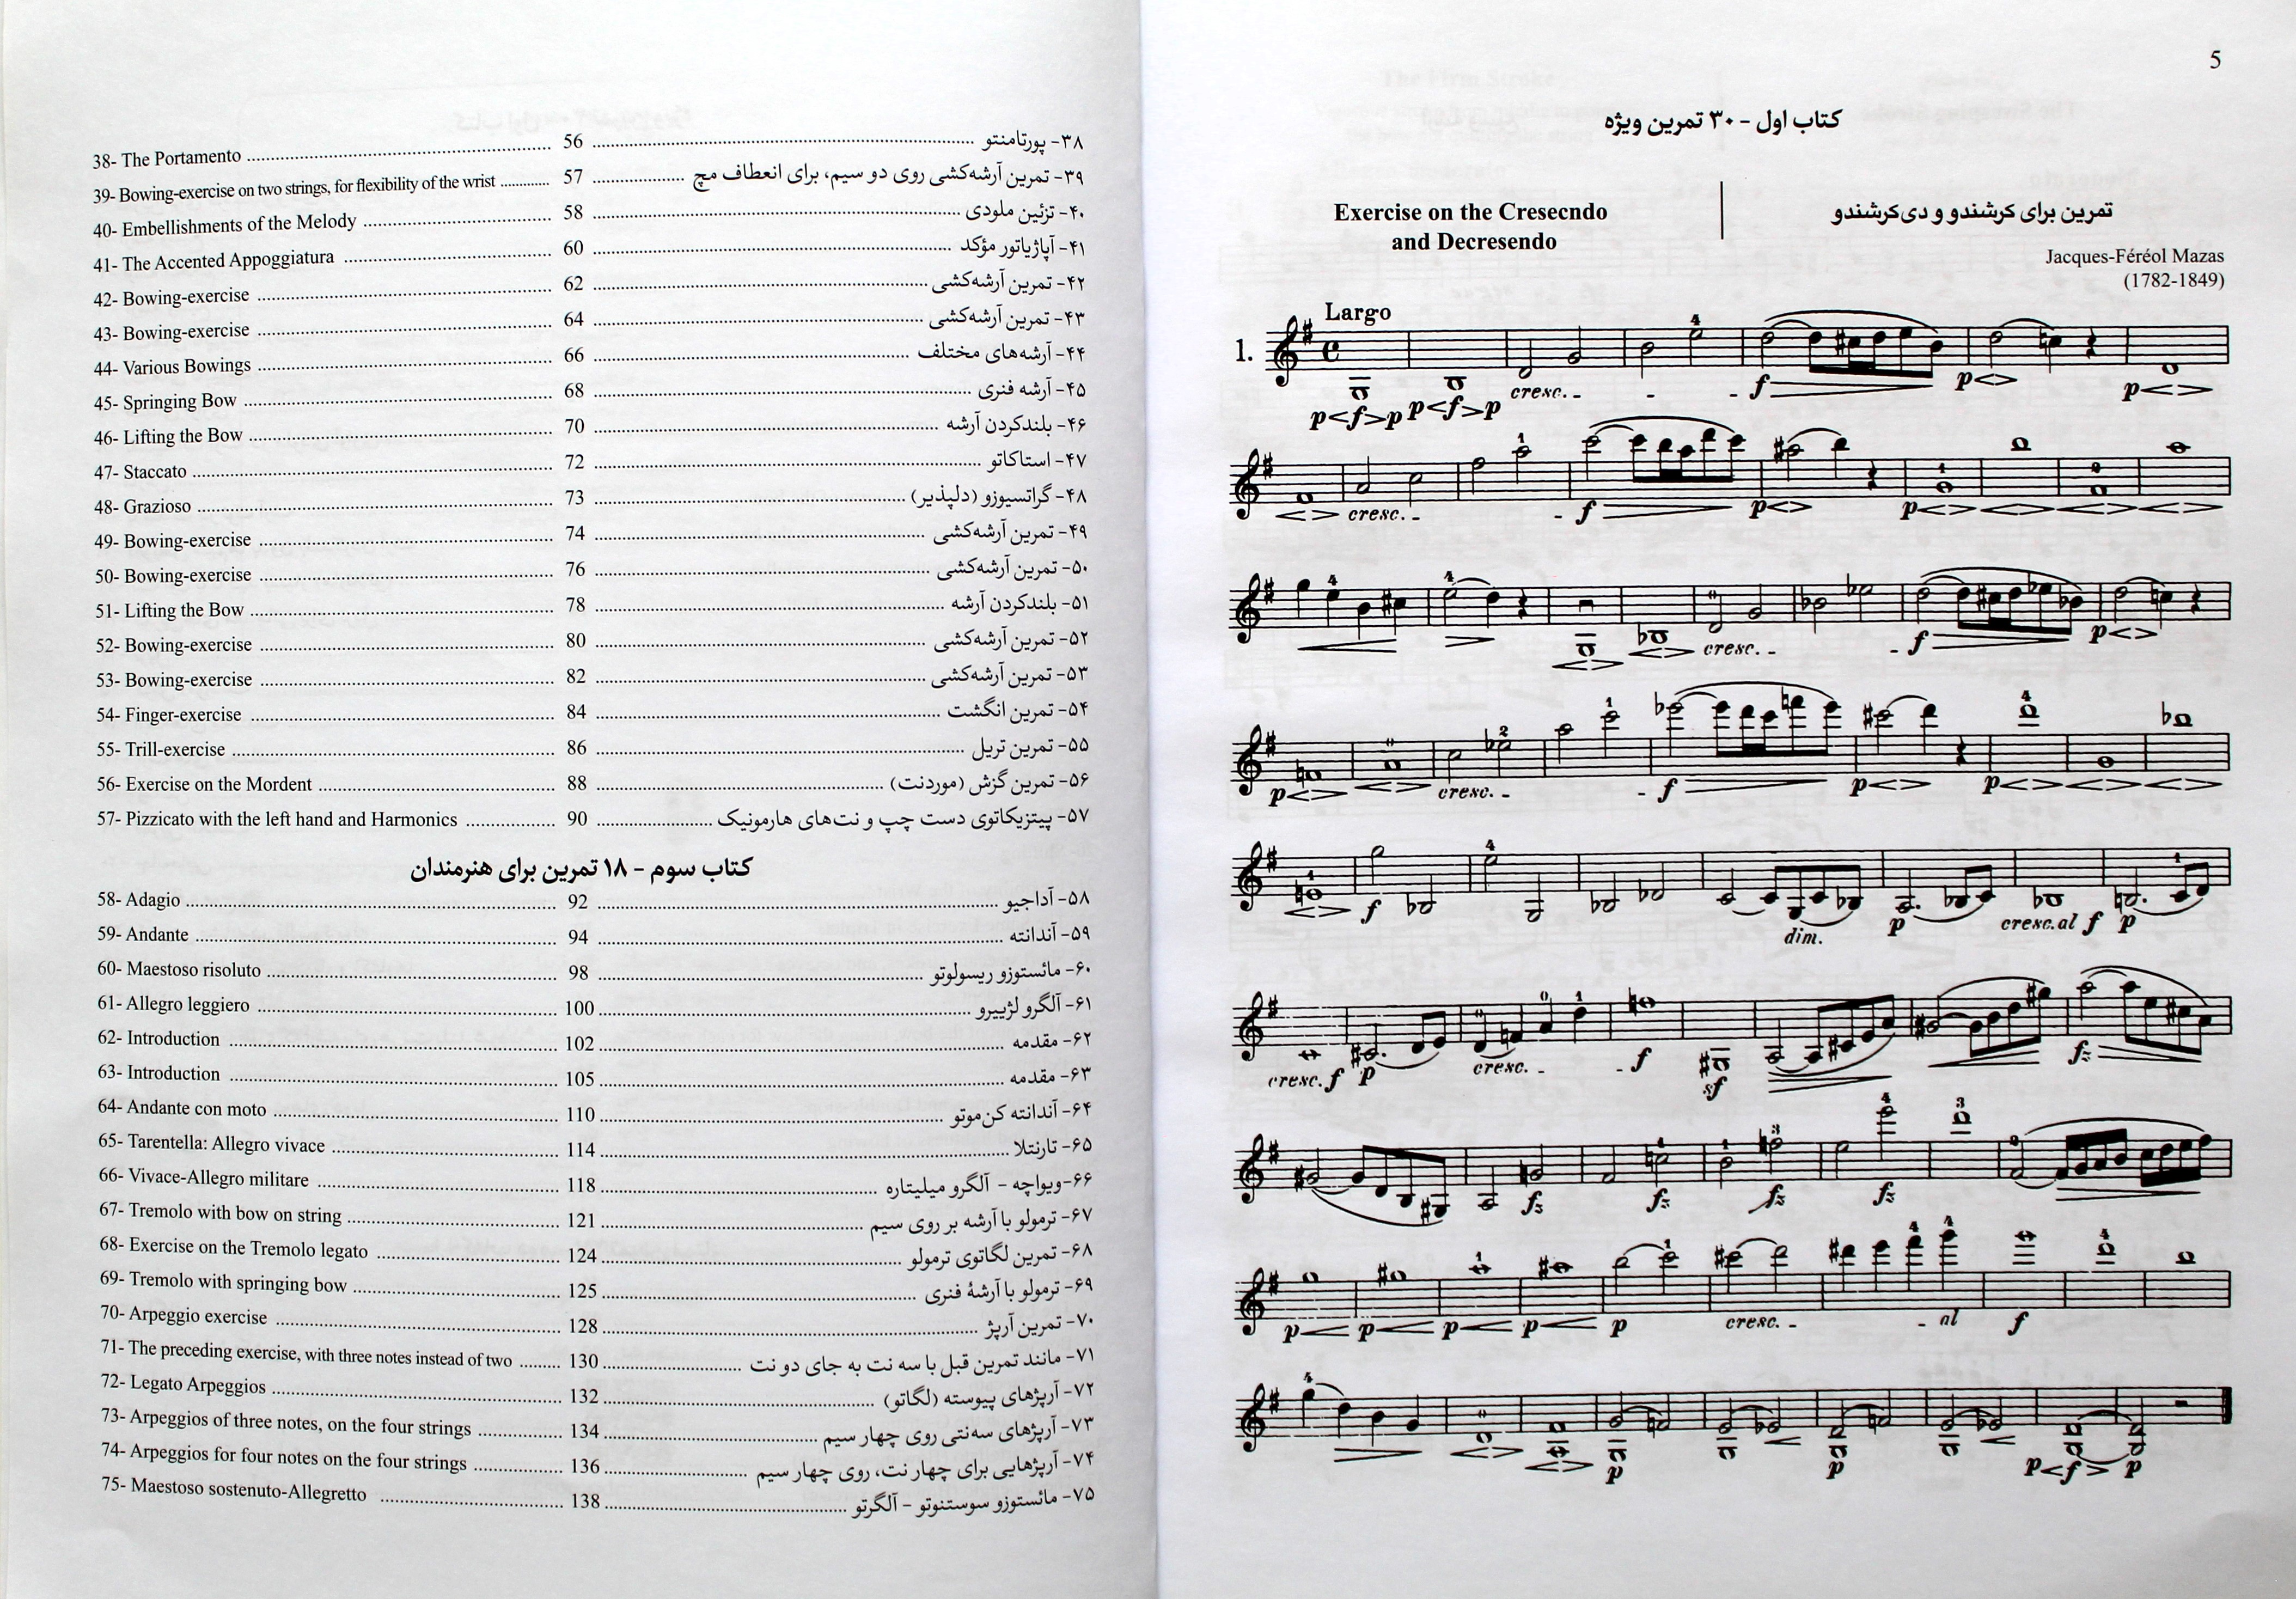 38- The Portamento ........ 56 ........ ۳۸- پورتامنتو
39- Bowing-exercise on two strings, for flexibility of the wrist ........ 57 ........ ۳۹- تمرین آرشه‌کشی روی دو سیم، برای انعطاف مچ
40- Embellishments of the Melody ........ 58 ........ ۴۰- تزئین ملودی
41- The Accented Appoggiatura ........ 60 ........ ۴۱- آپاژیاتور مؤکد
42- Bowing-exercise ........ 62 ........ ۴۲- تمرین آرشه‌کشی
43- Bowing-exercise ........ 64 ........ ۴۳- تمرین آرشه‌کشی
44- Various Bowings ........ 66 ........ ۴۴- آرشه‌های مختلف
45- Springing Bow ........ 68 ........ ۴۵- آرشه فنری
46- Lifting the Bow ........ 70 ........ ۴۶- بلندکردن آرشه
47- Staccato ........ 72 ........ ۴۷- استاکاتو
48- Grazioso ........ 73 ........ ۴۸- گراتسیوزو (دلپذیر)
49- Bowing-exercise ........ 74 ........ ۴۹- تمرین آرشه‌کشی
50- Bowing-exercise ........ 76 ........ ۵۰- تمرین آرشه‌کشی
51- Lifting the Bow ........ 78 ........ ۵۱- بلندکردن آرشه
52- Bowing-exercise ........ 80 ........ ۵۲- تمرین آرشه‌کشی
53- Bowing-exercise ........ 82 ........ ۵۳- تمرین آرشه‌کشی
54- Finger-exercise ........ 84 ........ ۵۴- تمرین انگشت
55- Trill-exercise ........ 86 ........ ۵۵- تمرین تریل
56- Exercise on the Mordent ........ 88 ........ ۵۶- تمرین گزش (موردنت)
57- Pizzicato with the left hand and Harmonics ........ 90 ........ ۵۷- پیتزیکاتوی دست چپ و نت‌های هارمونیک
کتاب سوم - ۱۸ تمرین برای هنرمندان
58- Adagio ........ 92 ........ ۵۸- آداجیو
59- Andante ........ 94 ........ ۵۹- آندانته
60- Maestoso risoluto ........ 98 ........ ۶۰- مائستوزو ریسولوتو
61- Allegro leggiero ........ 100 ........ ۶۱- آلگرو لژییرو
62- Introduction ........ 102 ........ ۶۲- مقدمه
63- Introduction ........ 105 ........ ۶۳- مقدمه
64- Andante con moto ........ 110 ........ ۶۴- آندانته کن‌موتو
65- Tarentella: Allegro vivace ........ 114 ........ ۶۵- تارنتلا
66- Vivace-Allegro militare ........ 118 ........ ۶۶-ویواچه - آلگرو میلیتاره
67- Tremolo with bow on string ........ 121 ........ ۶۷- ترمولو با آرشه بر روی سیم
68- Exercise on the Tremolo legato ........ 124 ........ ۶۸- تمرین لگاتوی ترمولو
69- Tremolo with springing bow ........ 125 ........ ۶۹- ترمولو با آرشهٔ فنری
70- Arpeggio exercise ........ 128 ........ ۷۰- تمرین آرپژ
71- The preceding exercise, with three notes instead of two ........ 130 ........ ۷۱- مانند تمرین قبل با سه نت به جای دو نت
72- Legato Arpeggios ........ 132 ........ ۷۲- آرپژهای پیوسته (لگاتو)
73- Arpeggios of three notes, on the four strings ........ 134 ........ ۷۳- آرپژهای سه‌نتی روی چهار سیم
74- Arpeggios for four notes on the four strings ........ 136 ........ ۷۴- آرپژهایی برای چهار نت، روی چهار سیم
75- Maestoso sostenuto-Allegretto ........ 138 ........ ۷۵- مائستوزو سوستنوتو - آلگرتو
5
کتاب اول - ۳۰ تمرین ویژه
Exercise on the Cresecndo
and Decresendo
تمرین برای کرشندو و دی‌کرشندو
Jacques-Féréol Mazas
(1782-1849)
Largo
1.
4
p f p p f p cresc. - - - f p p
1
cresc. - - f p p
1 2
4 4
cresc. - - f p
1 2 4
p cresc. - - f p p
1 4 1
f dim. p cresc. al f p
0 1
cresc. f p cresc. - - f sf fz
4 3
1 1 3 2
fz fz fz fz
4 4 4
1 1
p p p p p cresc. - - al f
4
p p p f p